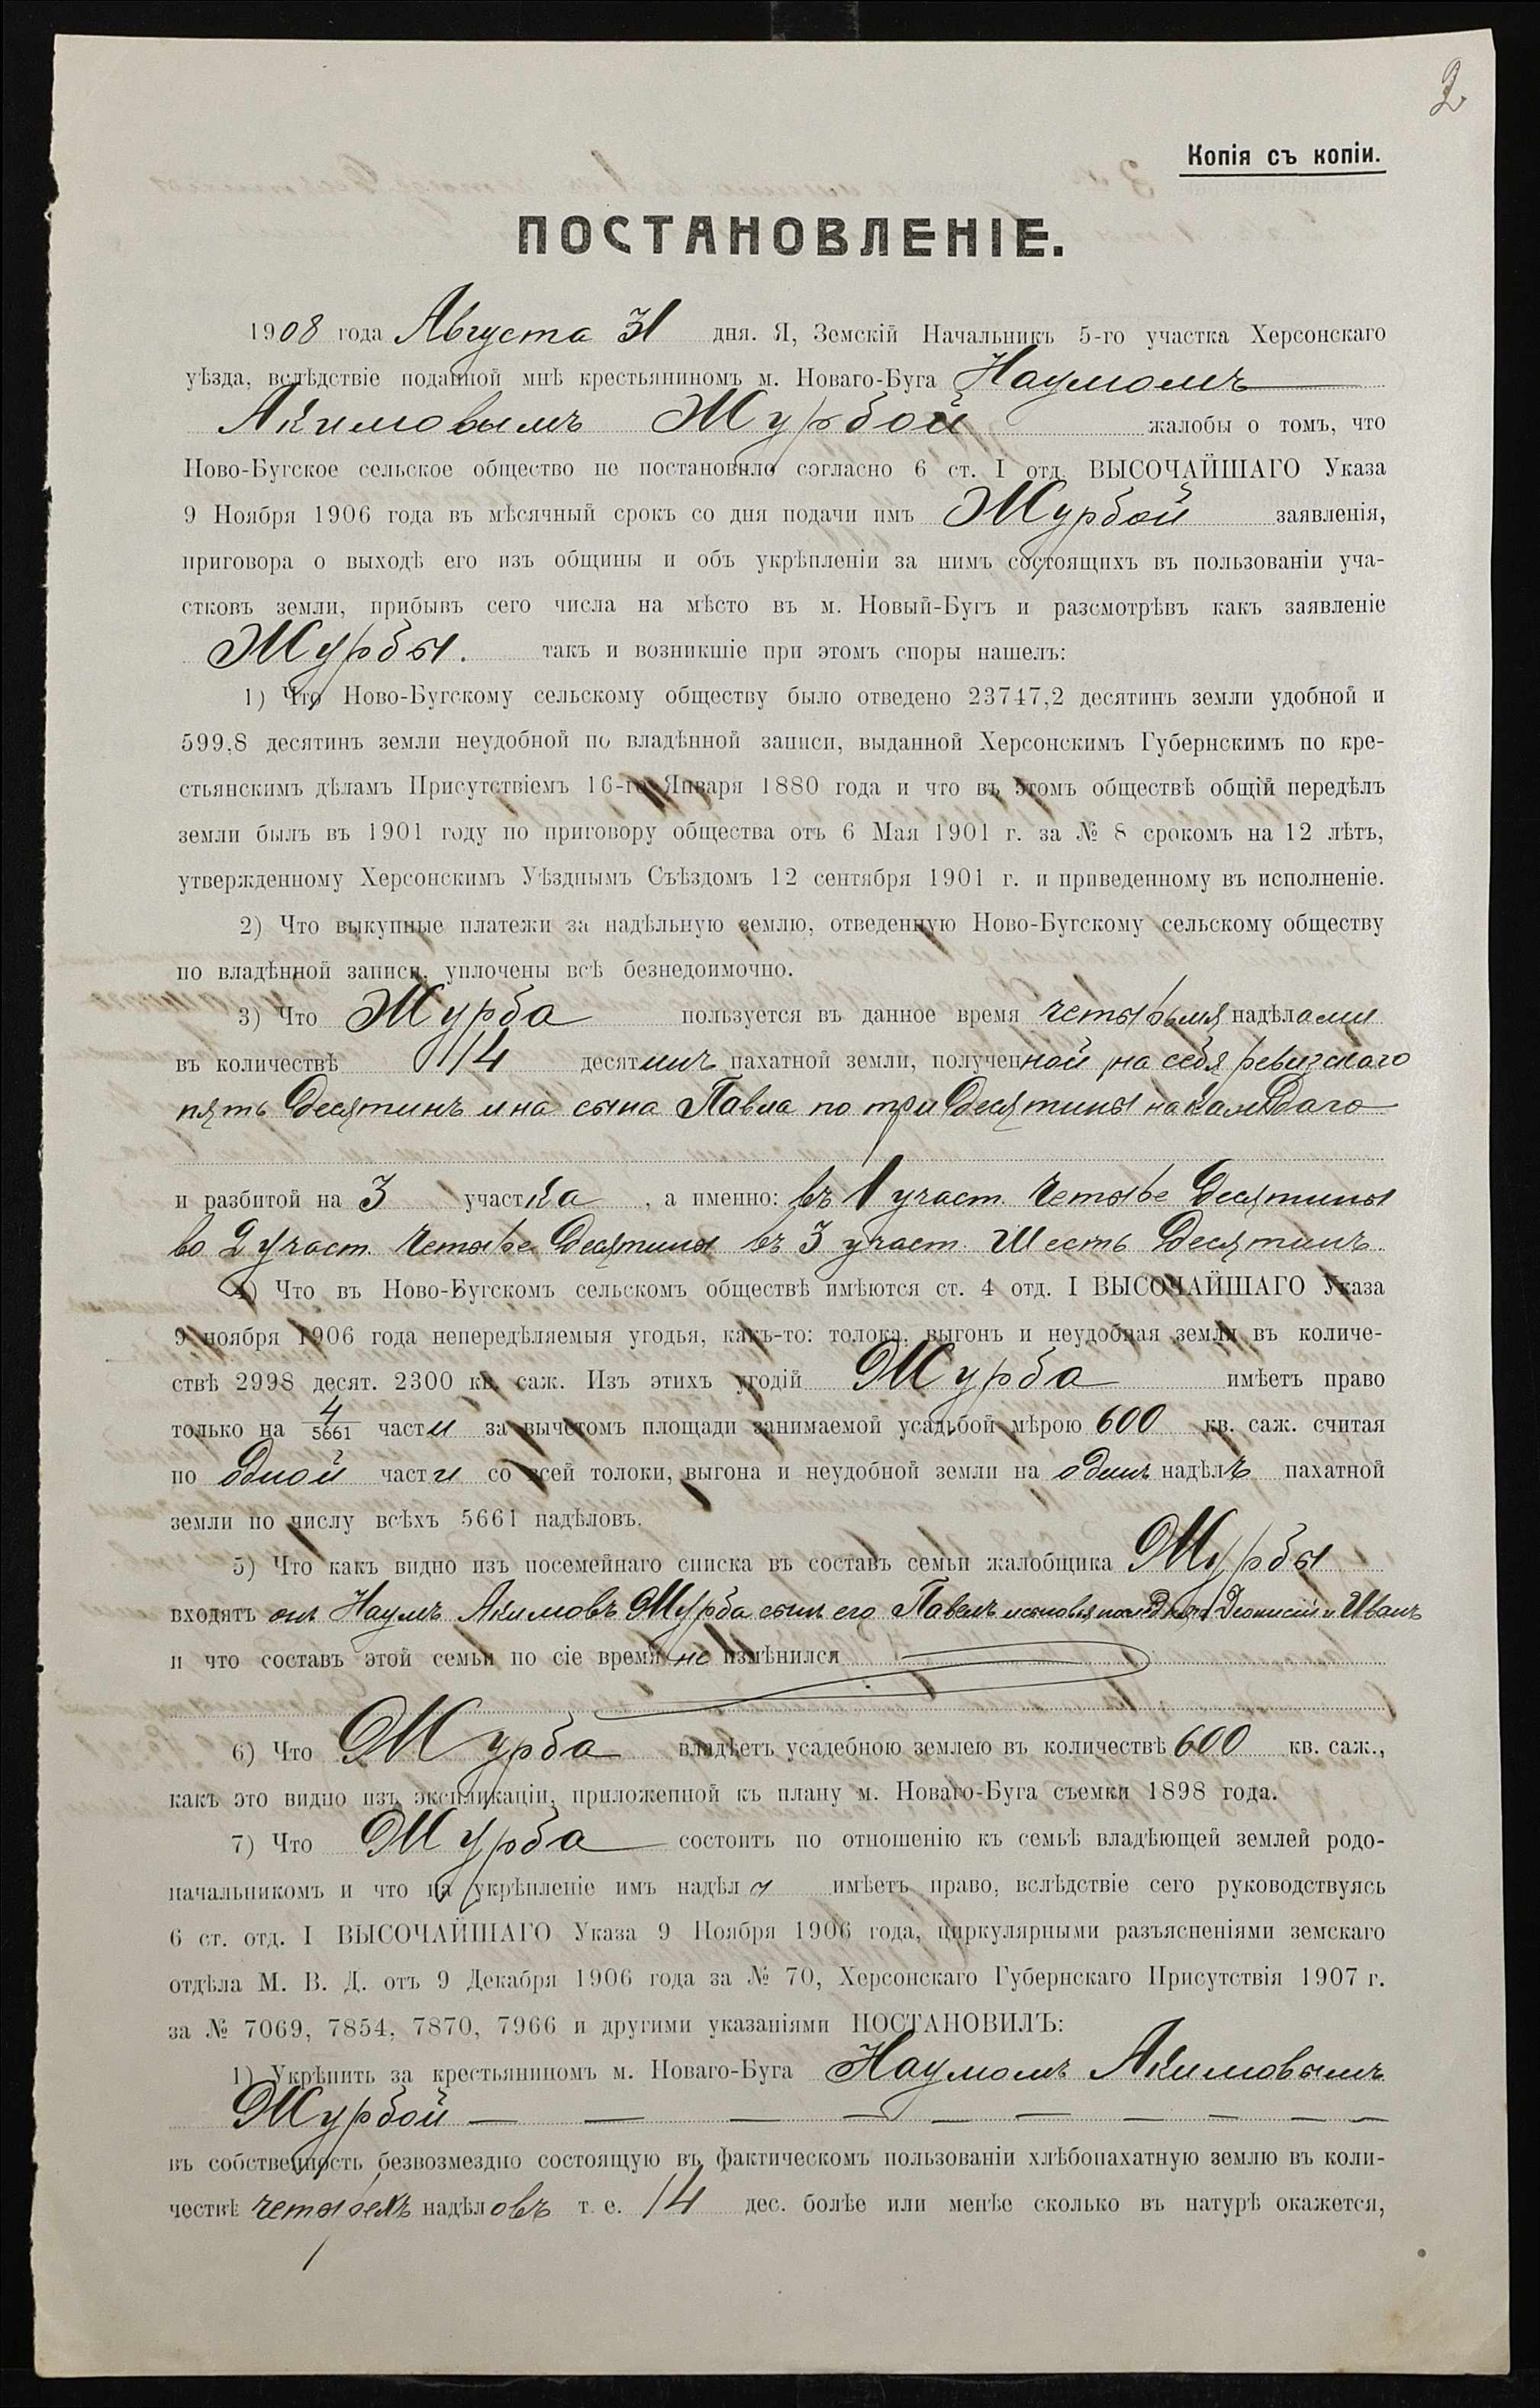 2
Копія съ копіи.
ПОСТАНОВЛЕНІЕ.
1908 года Августа 31 дня. Я, Земскій Начальникъ 5-го участка Херсонскаго
уѣзда, вслѣдствіе поданной мнѣ крестьяниномъ м. Новаго-Буга Наумомъ
Акимовымъ Журбой жалобы о томъ, что
Ново-Бугское сельское общество не постановило согласно 6 ст. I отд. ВЫСОЧАЙШАГО Указа
9 Ноября 1906 года въ мѣсячный срокъ со дня подачи имъ Журбой заявленія,
приговора о выходѣ его изъ общины и объ укрѣпленіи за нимъ состоящихъ въ пользованіи уча-
стковъ земли, прибывъ сего числа на мѣсто въ м. Новый-Бугъ и разсмотрѣвъ какъ заявленіе
Журбы. такъ и возникшіе при этомъ споры нашелъ:
1) Что Ново-Бугскому сельскому обществу было отведено 23747,2 десятинъ земли удобной и
599,8 десятинъ земли неудобной по владѣнной записи, выданной Херсонскимъ Губернскимъ по кре-
стьянскимъ дѣламъ Присутствіемъ 16-го Января 1880 года и что въ этомъ обществѣ общій передѣлъ
земли былъ въ 1901 году по приговору общества отъ 6 Мая 1901 г. за № 8 срокомъ на 12 лѣтъ,
утвержденному Херсонскимъ Уѣзднымъ Съѣздомъ 12 сентября 1901 г. и приведенному въ исполненіе.
2) Что выкупные платежи за надѣльную землю, отведенную Ново-Бугскому сельскому обществу
по владѣнной записи, уплочены всѣ безнедоимочно.
3) Что Журба пользуется въ данное время четырьмя надѣлами
въ количествѣ 14 десятинъ пахатной земли, полученной на себя ревизскаго
пять десятинъ и на сына Павла по три десятины на каждаго
и разбитой на 3 участка, а именно: въ 1 участ. четыре десятины
во 2 участ. четыре десятины въ 3 участ. шесть десятинъ.
4) Что въ Ново-Бугскомъ сельскомъ обществѣ имѣются ст. 4 отд. I ВЫСОЧАЙШАГО Указа
9 ноября 1906 года непередѣляемыя угодья, какъ-то: толока, выгонъ и неудобная земля въ количе-
ствѣ 2998 десят. 2300 кв. саж. Изъ этихъ угодій Журба имѣетъ право
только на 4/5661 части за вычетомъ площади занимаемой усадьбой мѣрою 600 кв. саж. считая
по одной части со всей толоки, выгона и неудобной земли на одинъ надѣлъ пахатной
земли по числу всѣхъ 5661 надѣловъ.
5) Что какъ видно изъ посемейнаго списка въ составъ семьи жалобщика Журбы
входятъ онъ Наумъ Акимовъ Журба сынъ его Павелъ и сыновья послѣдняго Діонисій и Иванъ
и что составъ этой семьи по сіе время не измѣнился
6) Что Журба владѣетъ усадебною землею въ количествѣ 600 кв. саж.,
какъ это видно изъ экспликаціи, приложенной къ плану м. Новаго-Буга съемки 1898 года.
7) Что Журба состоитъ по отношенію къ семьѣ владѣющей землей родо-
начальникомъ и что на укрѣпленіе имъ надѣла имѣетъ право, вслѣдствіе сего руководствуясь
6 ст. отд. I ВЫСОЧАЙШАГО Указа 9 Ноября 1906 года, циркулярными разъясненіями земскаго
отдѣла М. В. Д. отъ 9 Декабря 1906 года за № 70, Херсонскаго Губернскаго Присутствія 1907 г.
за № 7069, 7854, 7870, 7966 и другими указаніями ПОСТАНОВИЛЪ:
1) Укрѣпить за крестьяниномъ м. Новаго-Буга Наумомъ Акимовымъ
Журбой
въ собственность безвозмездно состоящую въ фактическомъ пользованіи хлѣбопахатную землю въ коли-
чествѣ четырехъ надѣловъ т. е. 14 дес. болѣе или менѣе сколько въ натурѣ окажется,